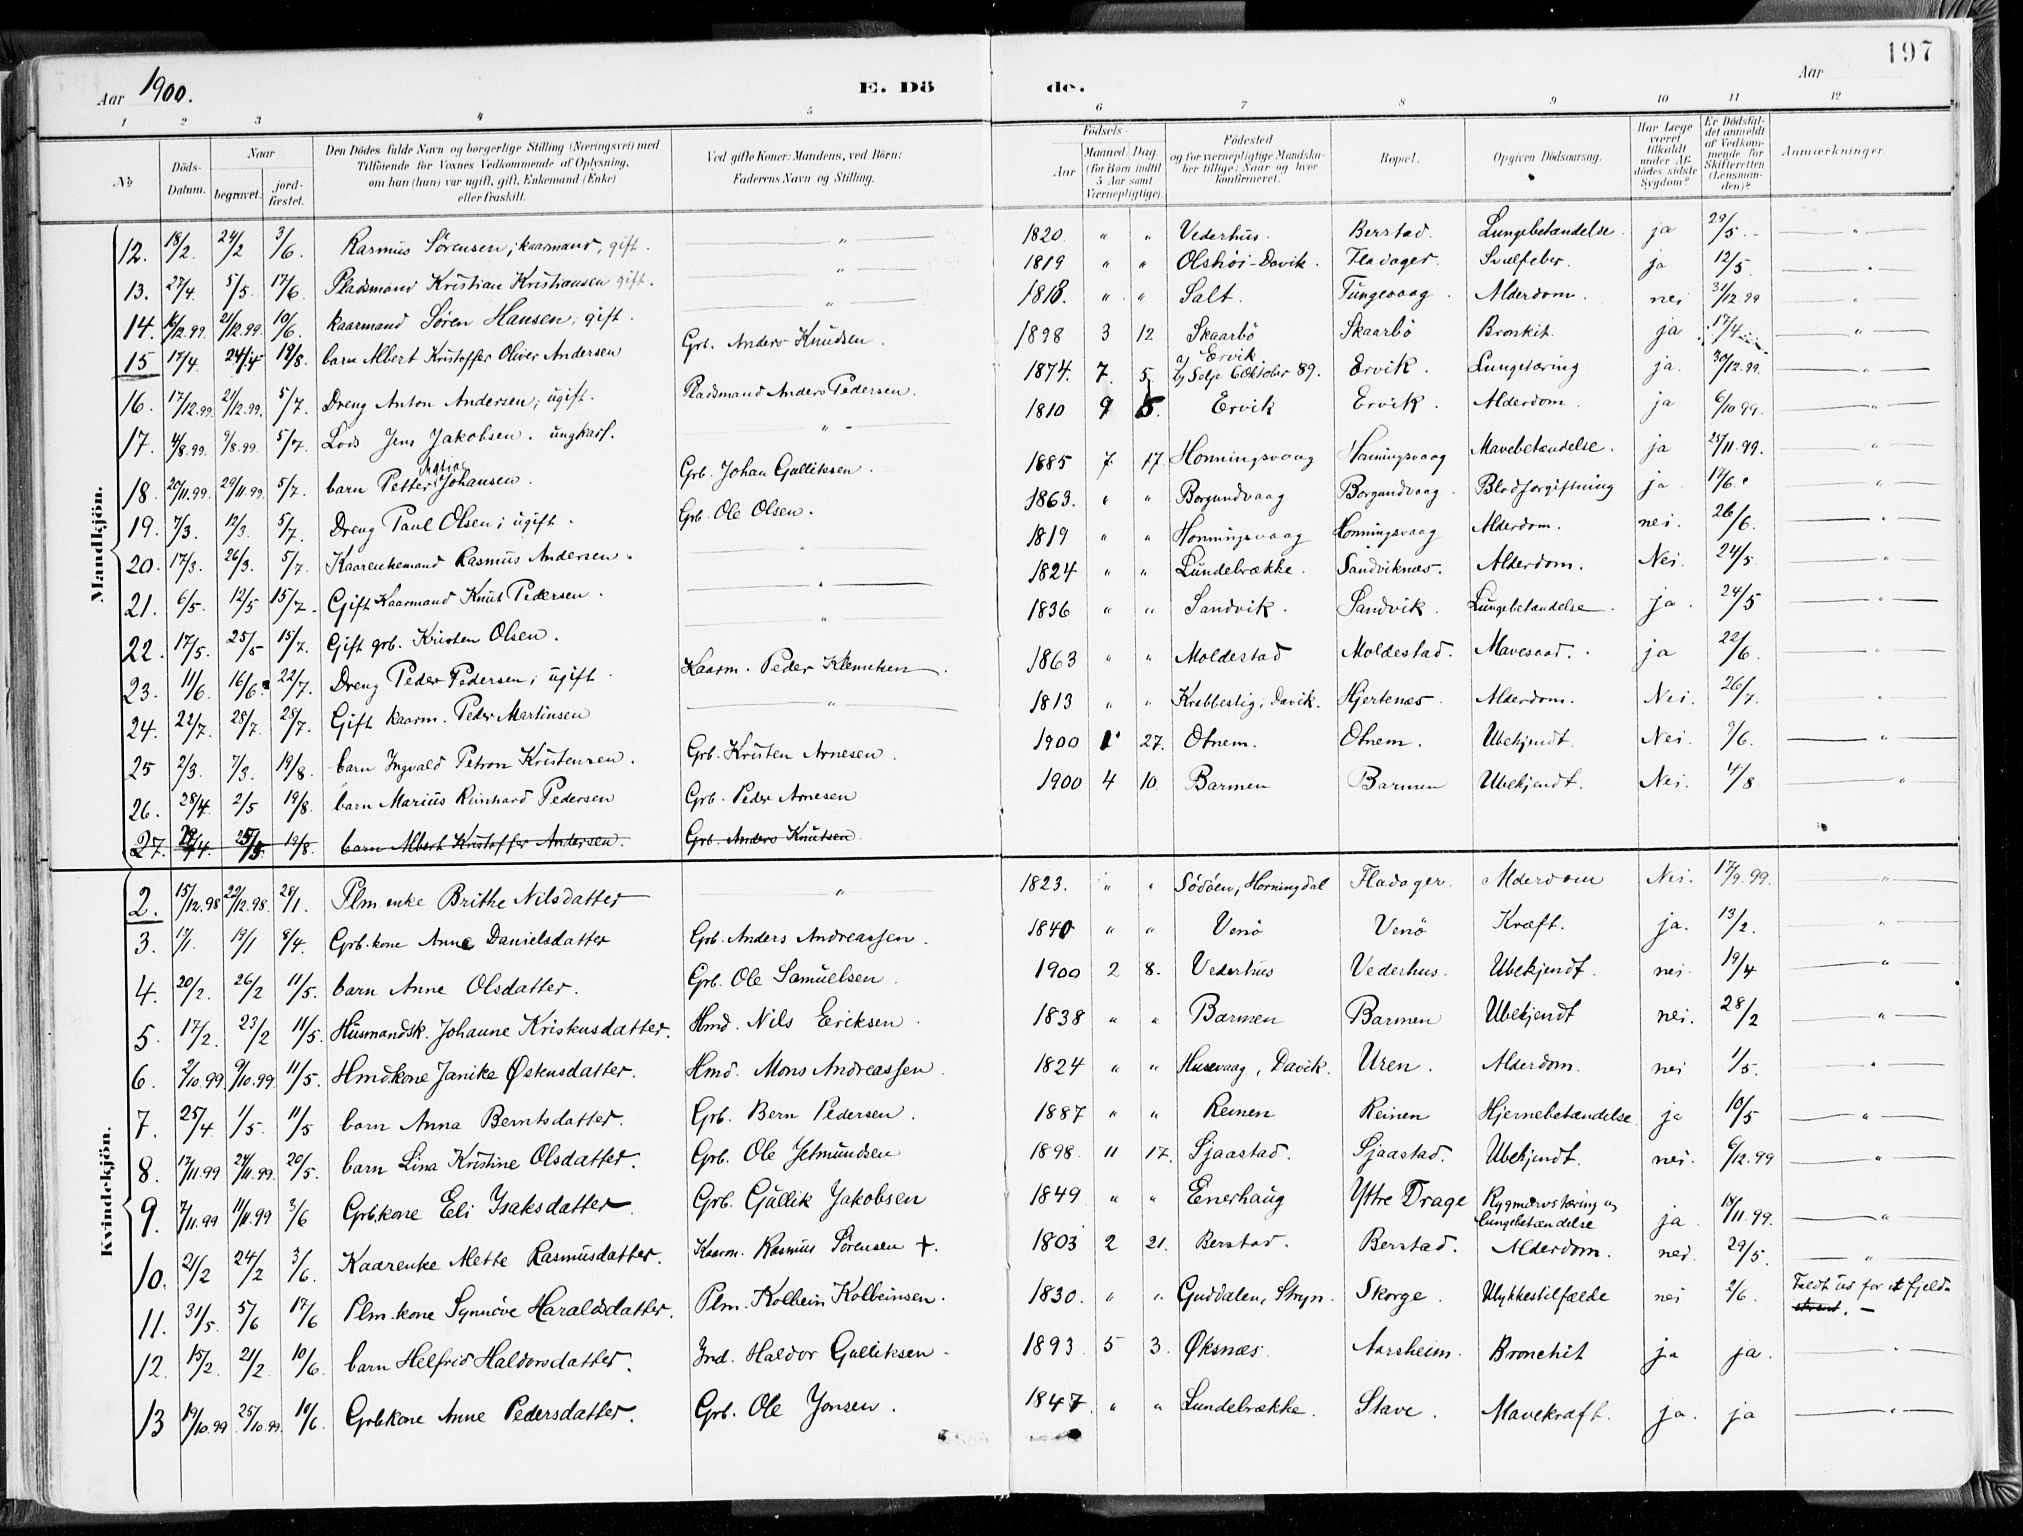 197
Aar 1900. E. Döde. Aar
1 2 3 4 5 6 7 8 9 10 11 12
No Döds-Datum. Naar begravet. jord-fæstet. Den Dödes fulde Navn og borgerlige Stilling (Næringsvei) med Tilföiende for Voxnes Vedkommende af Oplysning, om han (hun) var ugift, gift, Enkemand (Enke) eller fraskilt. Ved gifte Koner: Mandens, ved Börn: Faderens Navn og Stilling. Födsels- Aar Maaned. Dag (for Börn indtil 5 Aar samt Værnepligtige). Födested og for værnepligtige Mandskaber tillige: Naar og hvor konfirmeret. Bopæl. Opgiven Dödsaarsag. Har Læge været tilkaldt under Afdödes sidste Sygdom? Er Dödsfaldet anmeldt af Vedkommende for Skifteretten (Lensmanden)? Anmærkninger.
Mandkjön.
12. 18/2. 24/2 3/6. Rasmus Sörensen, kaarmand, gift. " 1820. " " Vederhus. Berstad. Lungebetændelse. ja 29/5. "
13. 27/4. 5/5. 17/6. Pladsmand Kristian Kristiansen gift. " 1819 " " Olshöi-Davik. Fladager. Svulfeber. ja 12/5. "
14. 16/12.99. 21/12.99. 10/6. kaarmand Sören Hansen, gift. " 1818. " " Salt. Tungevaag. Alderdom. nei 31/12.99 "
15 17/4. 24/4 19/8. barn Albert Kristoffer Oliver Andersen Grb. Anders Knudsen. 1898 3 12 Skaarbö Skaarbö Bronkit. ja 17/4 "
16. 17/12.99. 21/12.99. 5/7. Dreng Anton Andersen, ugift. Pladsmand Anders Pedersen. 1874. 7. 5. a) Ervik b) Selje 6 Oktober 89. Ervik. Lungetæring ja. 30/12.99. "
17. 4/8.99. 9/8.99. 5/7 Lods Jens Jakobsen. ungkarl. " 1810 9 5. Ervik Ervik. Alderdom. ja 6/10 99. "
18. 20/11.99. 29/11.99. 5/7. barn Petter Johansen. Grb. Johan Galliksen. 1885 7. 17. Honningsvaag Honningsvaag Mavebetændelse. ja 25/11.99. "
19. 7/3. 12/3. 5/7. Dreng Paul Olsen; ugift. Grb. Ole Olsen. 1863. " " Borgundvaag Borgundvaag Blodforgiftning ja 17/6. "
20. 17/3. 26/3. 5/7. Kaarenkemand Rasmus Andersen. " 1819 " " Honningsvaag Honningsvaag Alderdom. nei. 26/6. "
21. 6/5. 12/5 15/7. Gift Kaarmand Knut Pedersen. " 1824 " " Lundebrække. Sandviknæs. Alderdom. Nei. 24/5. "
22. 17/5. 25/5 15/7. Gift grb. Kristen Olsen. " 1836 " " Sandvik. Sandvik. Lungebetændelse. ja. 24/5 "
23. 11/6. 16/6. 22/7. Dreng Peder Pedersen; ugift. Kaarm. Peder Klemetsen. 1863 " " Moldestad Moldestad. Mavesaar. ja 22/6. "
24. 22/7. 28/7. 28/7. Gift kaarm. Peder Martinsen " 1813 " " Krabbestig, Davik. Hjertenæs. Alderdom. Nei. 26/7. "
25 2/3. 7/3. 19/8. barn Ingvald Petron Kristensen. Grb. Kristen Arnesen. 1900 1. 27. Otnem. Otnem. Ubekjendt. Nei. 9/6. "
26. 28/4. 2/5 19/8. barn Marius Reinhard Pedersen Grb. Peder Arnesen 1900 4 10. Barmen Barmen Ubekjendt. Nei. 4/8 "
27. 19/4. 25/5. 19/8. barn Albert Kristoffer Andersen. Grb. Anders Knutsen.
Kvindekjön.
2. 15/12.98 22/12.98. 28/1. Plm enke Brithe Nilsdatter " 1823. " " Södöen, Horningdal Fladager. Alderdom Nei. 17/9.99. "
3. 13/1. 19/1 8/4. Grb. kone Anne Danielsdatter Grb. Anders Andreassen. 1840 " " Venö Venö Kræft. ja. 13/2. "
4. 20/2. 26/2 11/5. barn Anne Olsdatter. Grb. Ole Samuelsen. 1900 2 8. Vederhus Vederhus. Ubekjendt. nei. 19/4 "
5. 17/2. 23/2 11/5. Husmandsk. Johanne Kristensdatter. Hmd. Nils Ericksen. 1838 " " Barmen Barmen Ubekjendt nei. 28/2 "
6. 2/10.99. 9/10.99. 11/5. Hmdkone Janike Østensdatter. Hmd. Mons Andreassen. 1824 " " Husevaag, Davik. Uren. Alderdom. nei 1/5. "
7. 25/4 1/5. 11/5 barn Anna Berntsdatter. Grb. Bern Pedersen. 1887 " " Reinen Reinen Hjernebetændelse ja 10/5 "
8. 17/11.99 24/11.99. 20/5. barn Lina Kristine Olsdatter. Grb. Ole Jetmundsen 1898. 11 17. Sjaastad. Sjaastad. Ubekjendt. nei. 6/12.99 "
9. 7/11.99 11/11.99 3/6 Grb. kone Eli Isaksdatter. Grb. Gullik Jakobsen 1849 " " Enerhaug Yttre Drage Rygmarvstæring og Lungebetændelse ja 18/11.99. "
10. 21/2 24/2 3/6. Kaarenke Mette Rasmusdatter. Kaarm. Rasmus Sörensen +. 1803 2 21. Berstad. Berstad. Alderdom. nei. 29/5. "
11. 31/5. 5/6 17/6 Plm. kone Synnöve Haraldsdatter. Plm. Kolbein Kolbeinsen. 1830. " " Guddalen, Stryn. Skorge. Ulykkestilfælde nei 2/6. Faldt ud for et fjeld.
12. 15/2. 21/2. 10/6. barn Helfrid Haldorsdatter. Ind. Haldor Galliksen. 1893 5 3. Øksnæs. Aarsheim. Bronchit ja ja. "
13 19/10.99 25/10.99. 10/6. Grb. kone Anne Pedersdatter. Grb. Ole Jonsen. 1847. " " Lundebrække. Stave. Mavekræft. ja. ja "